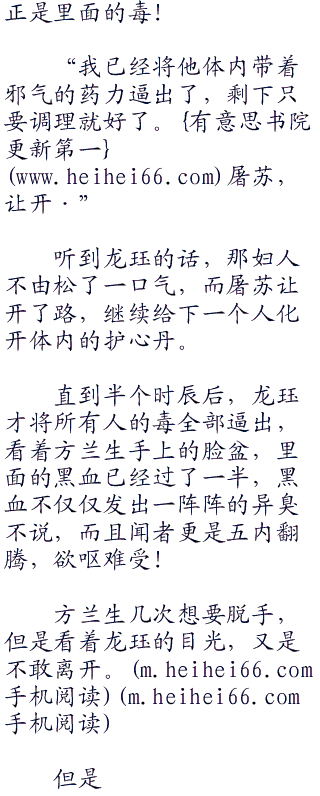 正是里面的毒！
“我已经将他体内带着
邪气的药力逼出了，剩下只
要调理就好了。{有意思书院
更新第一}
(www.heihei66.com)屠苏，
让开·”
听到龙珏的话，那妇人
不由松了一口气，而屠苏让
开了路，继续给下一个人化
开体内的护心丹。
直到半个时辰后，龙珏
才将所有人的毒全部逼出，
看着方兰生手上的脸盆，里
面的黑血已经过了一半，黑
血不仅仅发出一阵阵的异臭
不说，而且闻者更是五内翻
腾，欲呕难受！
方兰生几次想要脱手，
但是看着龙珏的目光，又是
不敢离开。(m.heihei66.com
手机阅读)(m.heihei66.com
手机阅读)
但是